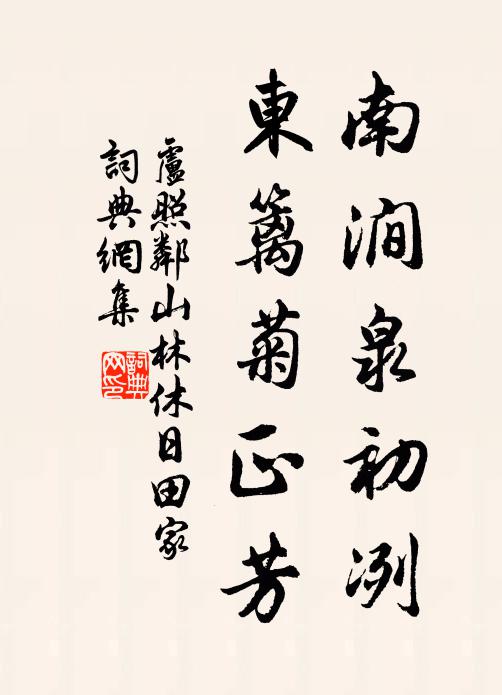 南澗泉初冽
東籬菊正芳
盧照鄰山林休日田家
詞典網集
詞典網印